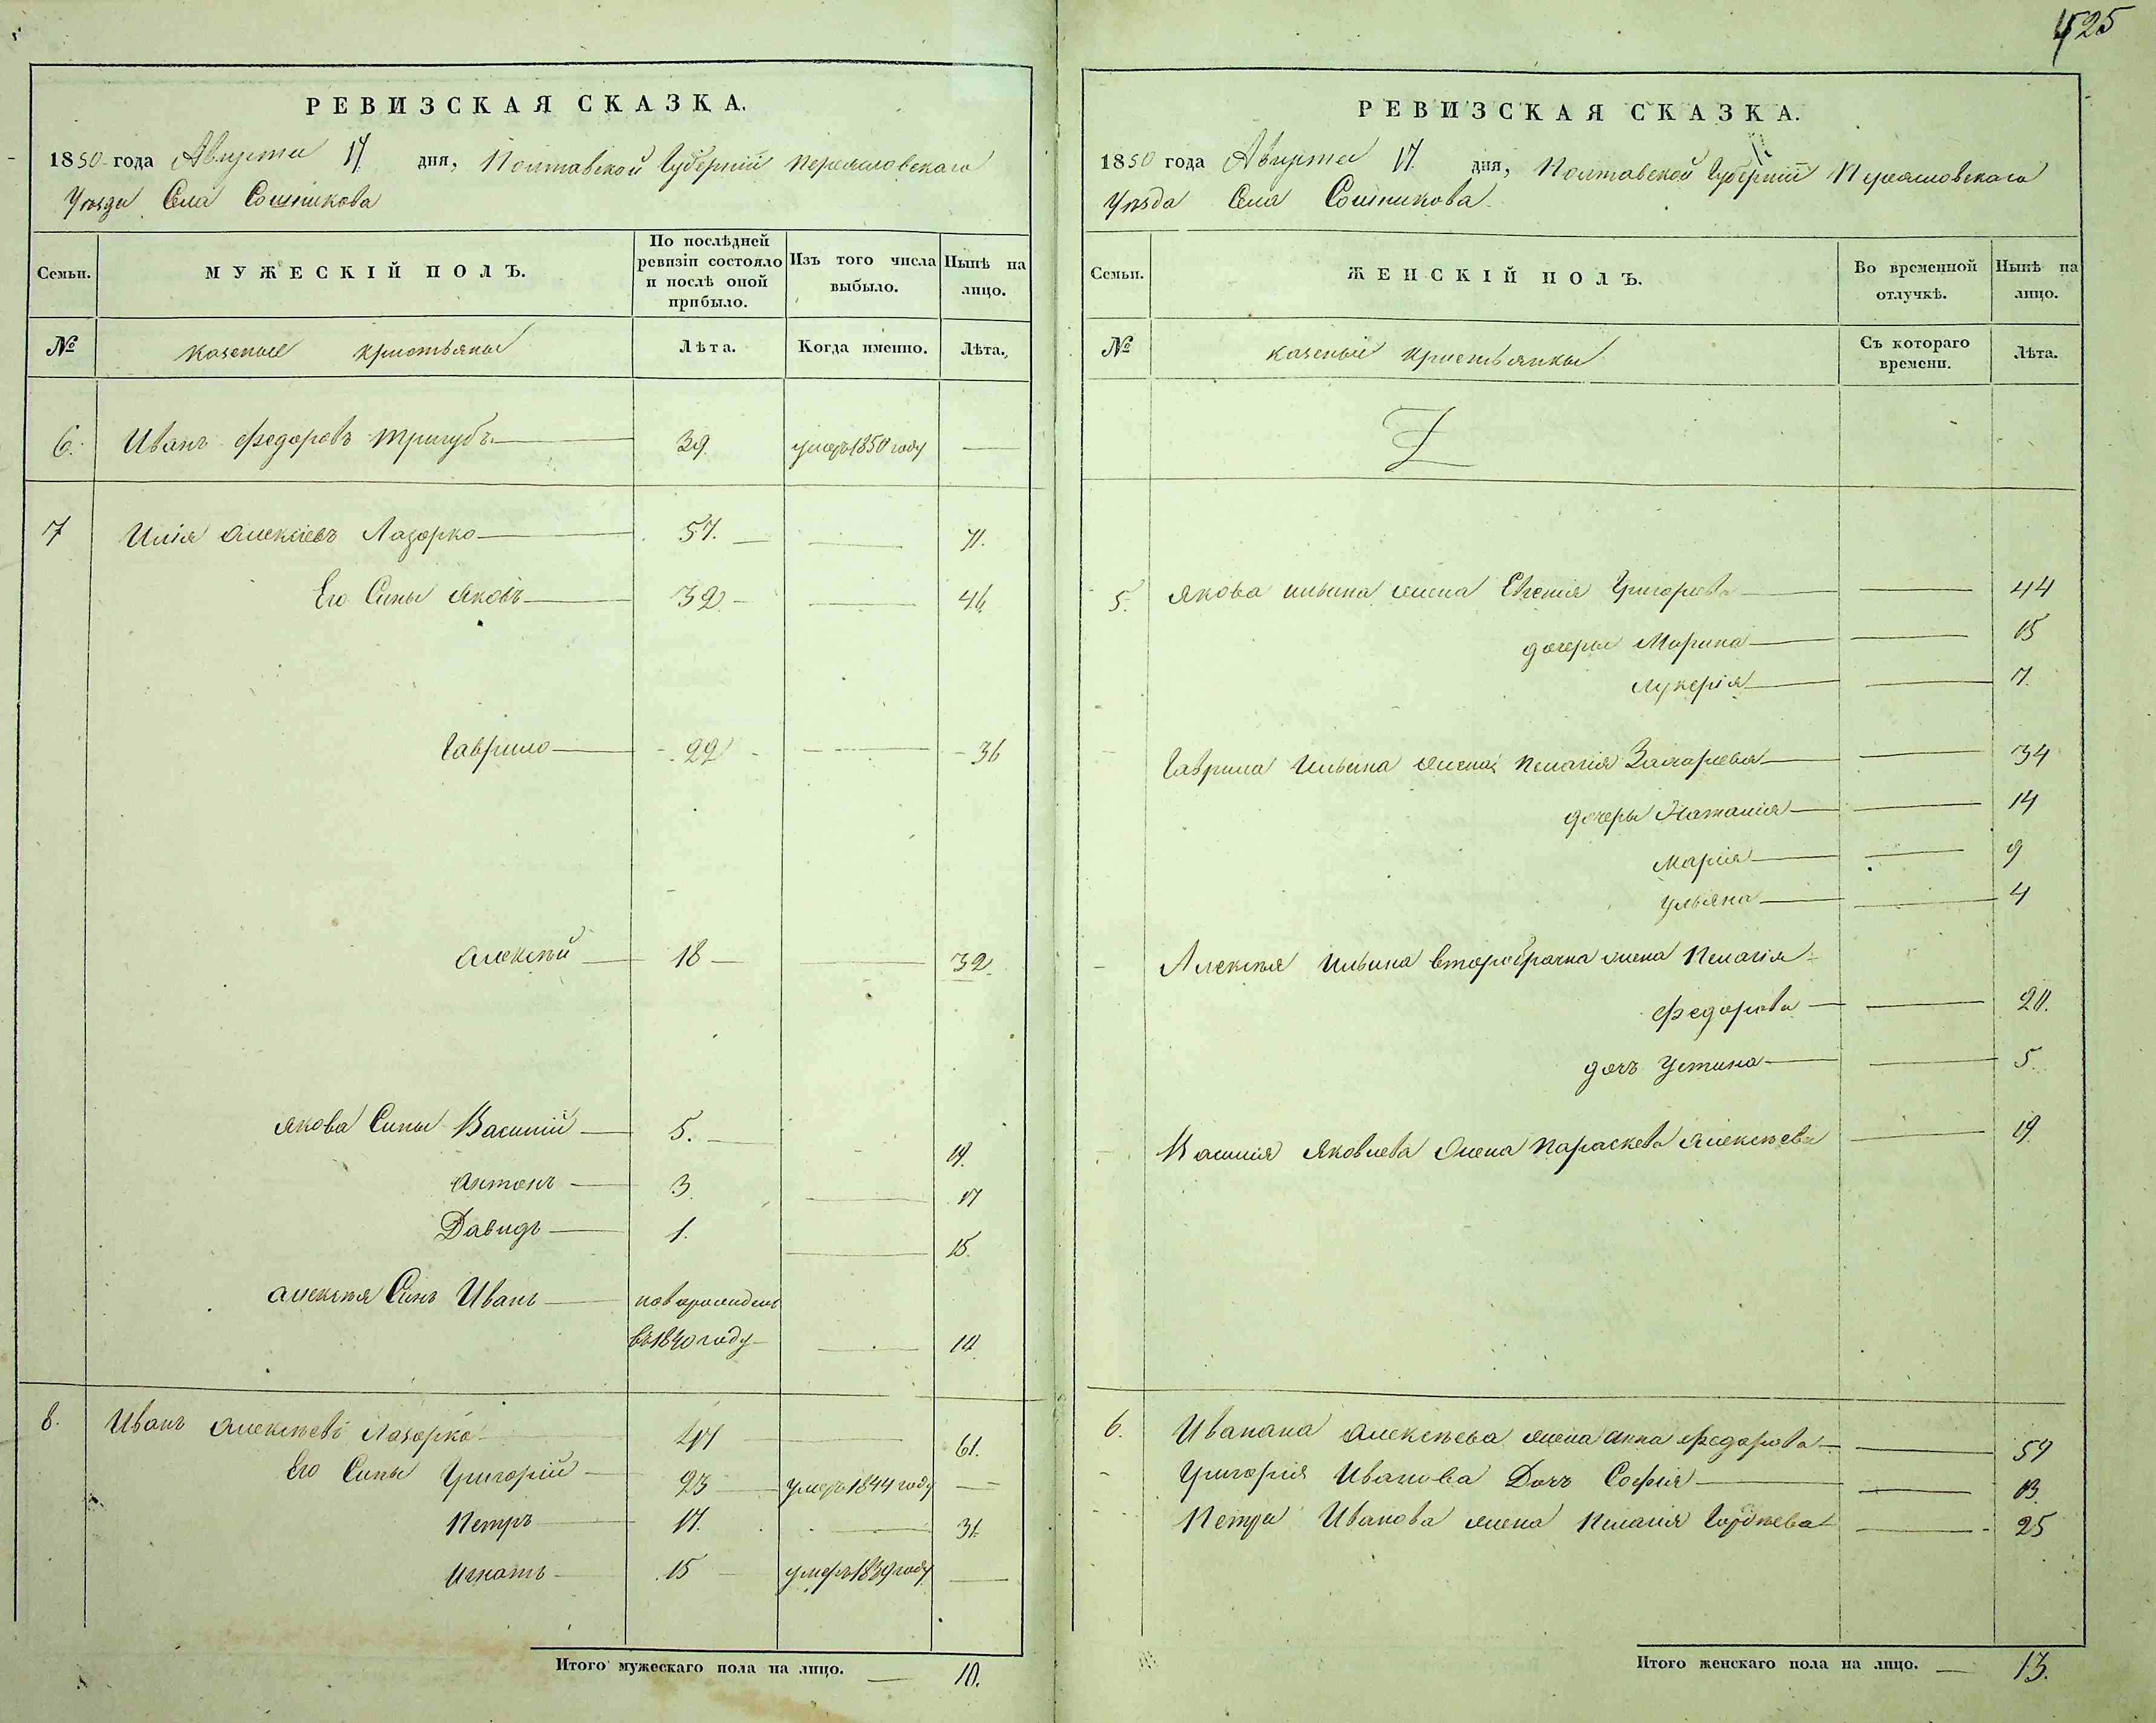 525
РЕВИЗСКАЯ СКАЗКА.
1850 года Августа 17 дня, Полтавской Губерніи Переяловскаго
Уѣзда Села Сошникова
Семьи. МУЖЕСКІЙ ПОЛЪ. По послѣдней ревизіи состояло и послѣ оной прибыло. Изъ того числа выбыло. Нынѣ на лицо.
№ казеные Кристьяны Лѣта. Когда именно. Лѣта.
6. Иванъ Федоровъ Тригубъ 39. умеръ 1850 году —
7 Илія Алексіевъ Лазорко 57. — 71.
Его Сины Яковъ 32 — 46
Гаврило 22 — 36
Алексѣй 18 — 32
Якова Сины Василій 5. 19.
Антонъ 3. — 17
Давидъ 1. — 15.
Алексѣя Синъ Иванъ новорожденъ
въ 1840 году — 10.
8. Иванъ Алексѣевъ Лазорко 47 — 61.
Его Сины Григорій 23 умеръ 1844 году —
Петръ 17. — 31.
Игнатъ 15 умеръ 1839 году —
Итого мужескаго пола на лицо. — 10.
РЕВИЗСКАЯ СКАЗКА.
1850 года Августа 17 дня, Полтавской Губерніи Переяловскаго
Уѣзда Села Сошникова
Семьи. ЖЕНСКІЙ ПОЛЪ. Во временной отлучкѣ. Нынѣ на лицо.
№ казеный Кристьянкы Съ котораго времени. Лѣта.
5. Якова Ильина жена Евгенія Григорьева — 44
дочеры Марина — 15
Лукерія — 7.
Гаврила Ильина жена Пелагія Захарьева — 34
дочеры Наталія — 14
Марія — 9
Ульяна — 4
Алексѣя Ильина второбрачна жена Пелагія
Федорова — 20.
дочъ Устина — 5.
Василія Яковлева жена Параскева Алексѣева — 19.
6. Иванана Алексѣева жена Анна Федорова — 59
Григорія Иванова Дочъ Софія — 13.
Петра Иванова жена Пелагія Гордѣева — 25
Итого женскаго пола на лицо. — 13.